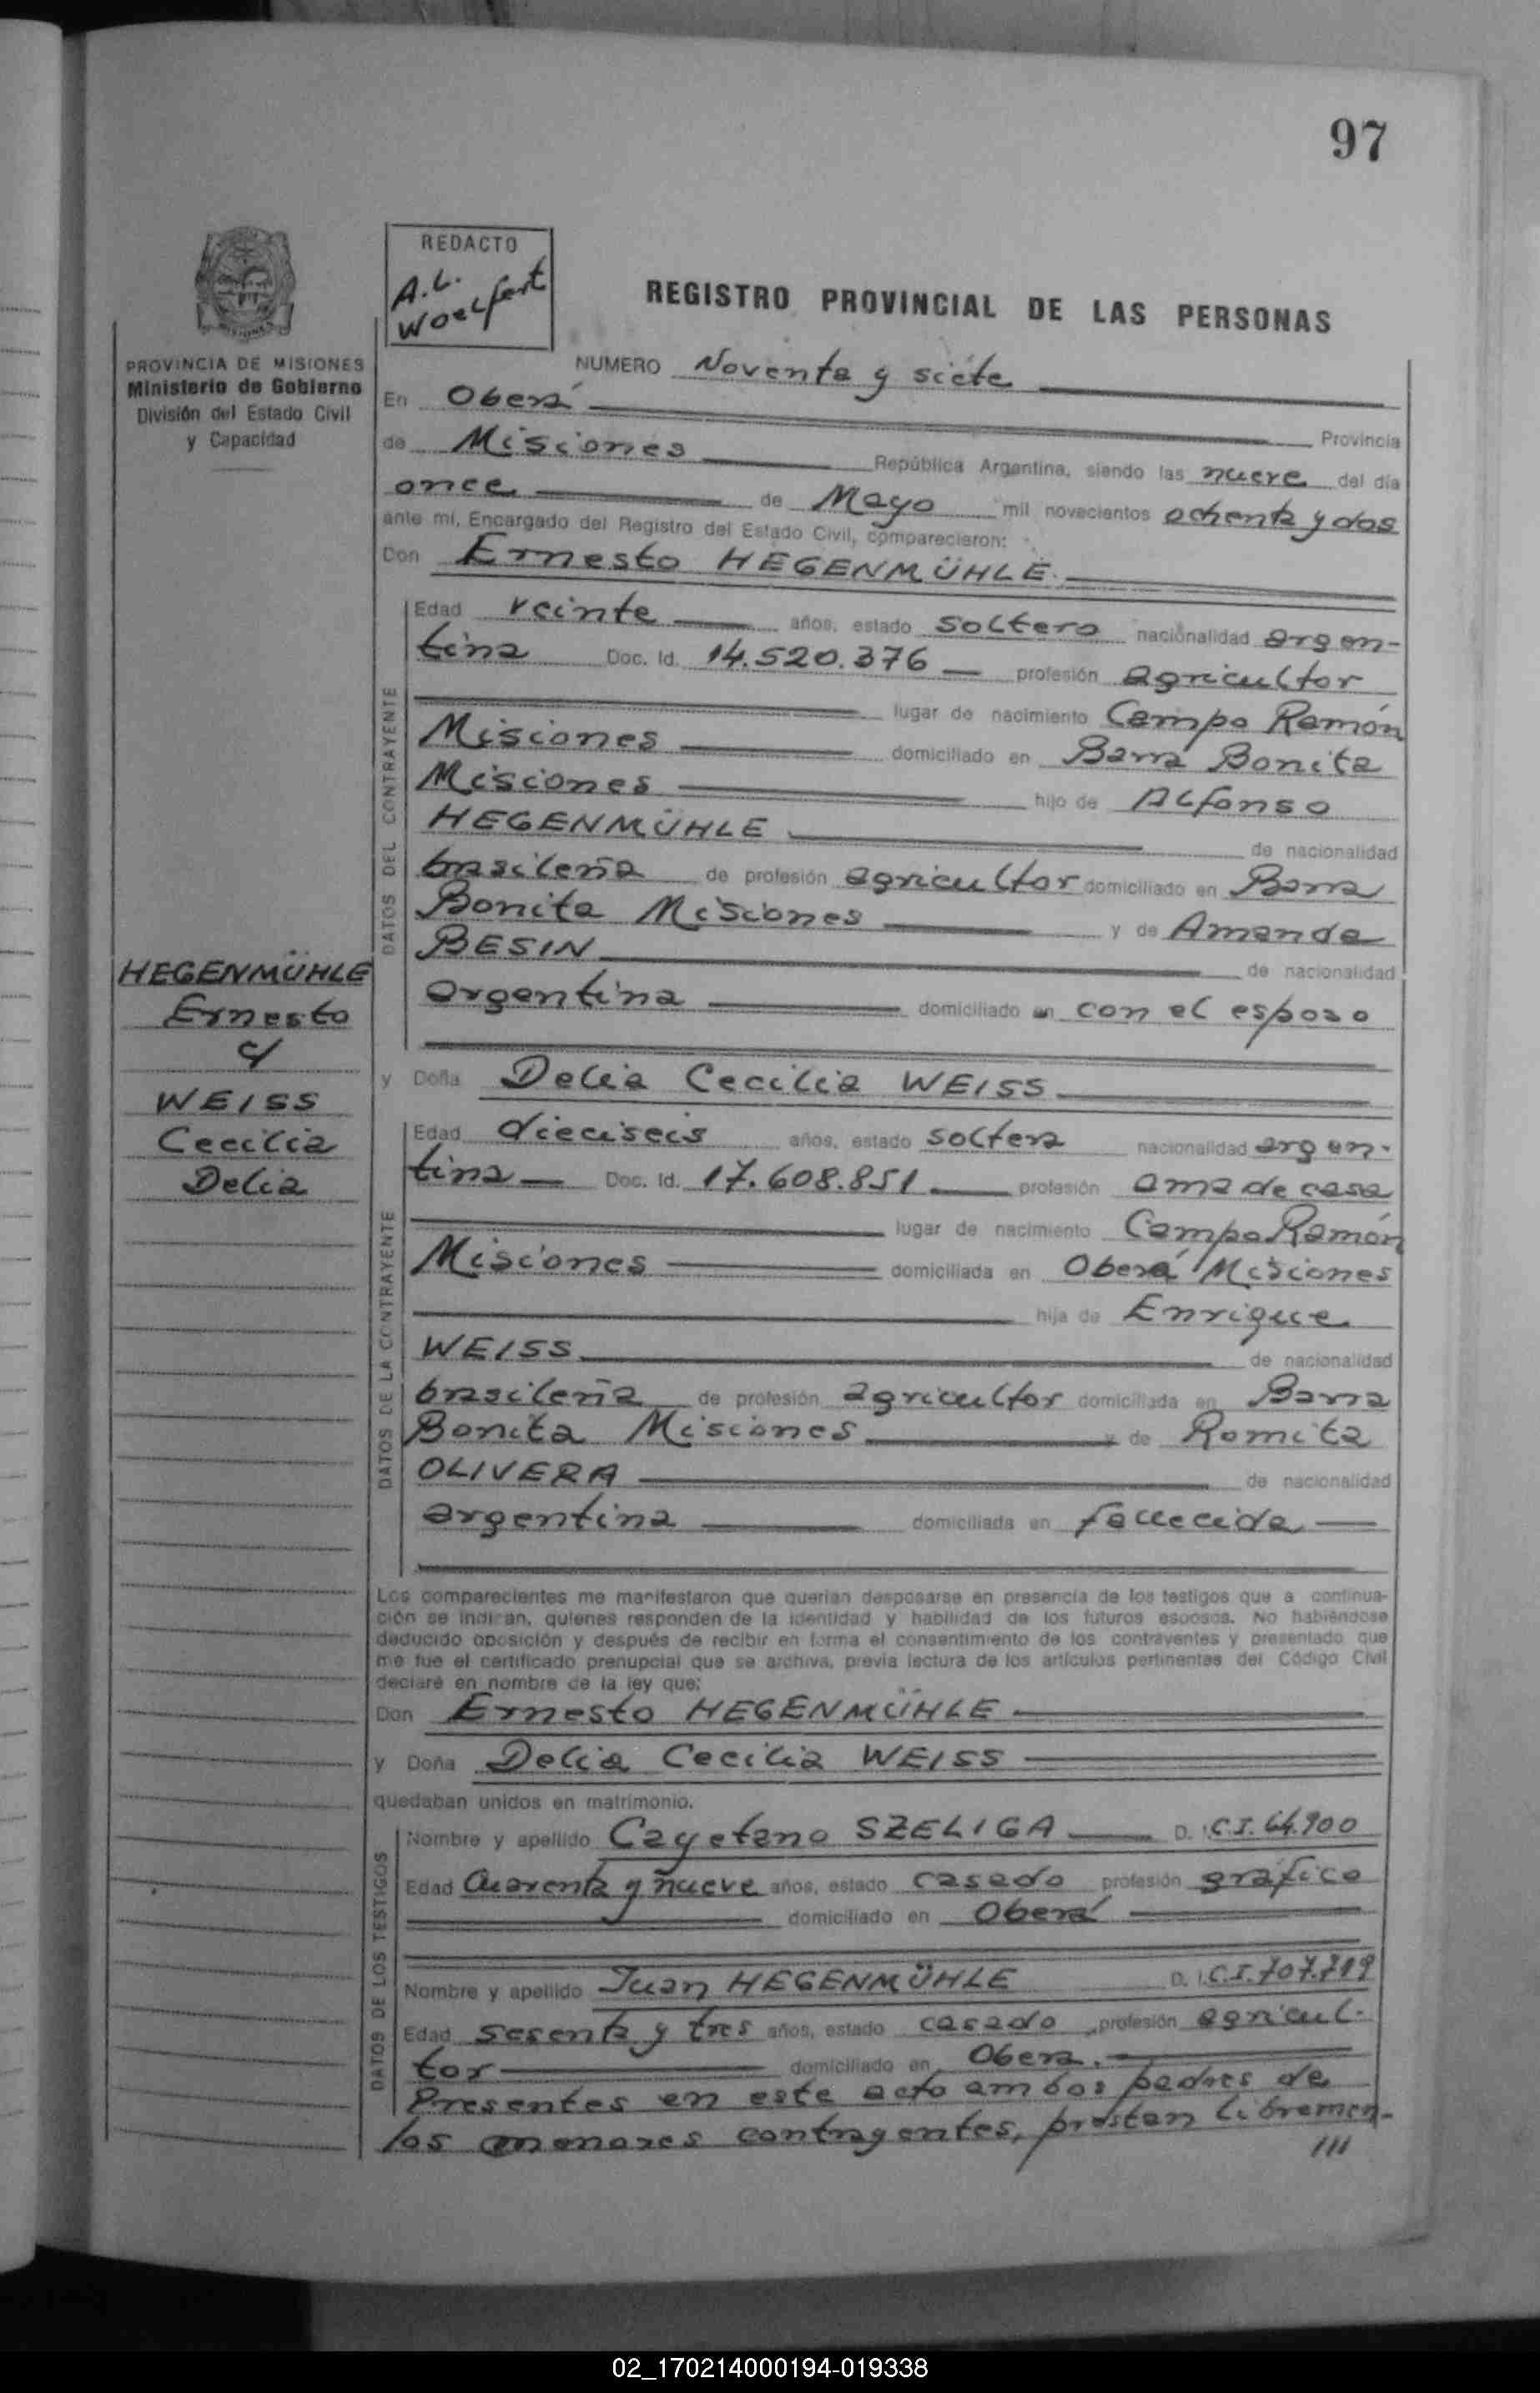 97
REDACTO
A.L.
Woelfert
REGISTRO PROVINCIAL DE LAS PERSONAS
PROVINCIA DE MISIONES
Ministerio de Gobierno
División del Estado Civil
y Capacidad
NUMERO Noventa y siete
En Oberá Provincia
de Misiones República Argentina, siendo las nueve del día
once de Mayo mil novecientos ochenta y dos
ante mí, Encargado del Registro del Estado Civil, comparecieron:
Don Ernesto HEGENMÜHLE
DATOS DEL CONTRAYENTE
Edad veinte años, estado soltero nacionalidad argen-
tina Doc. Id. 14.520.376 profesión agricultor
lugar de nacimiento Campo Ramón
Misiones domiciliado en Barra Bonita
Misiones hijo de Alfonso
HEGENMÜHLE de nacionalidad
brasileña de profesión agricultor domiciliado en Barra
Bonita Misiones y de Amanda
BESIN de nacionalidad
argentina domiciliado en con el esposo
HEGENMÜHLE
Ernesto
c/
WEISS
Cecilia
Delia
y Doña Delia Cecilia WEISS
DATOS DE LA CONTRAYENTE
Edad dieciseis años, estado soltera nacionalidad argen-
tina Doc. Id. 17.608.851 profesión ama de casa
lugar de nacimiento Campo Ramón
Misiones domiciliada en Oberá Misiones
hija de Enrique
WEISS de nacionalidad
brasileña de profesión agricultor domiciliada en Barra
Bonita Misiones y de Romita
OLIVERA de nacionalidad
argentina domiciliada en fallecida
Los comparecientes me manifestaron que querían desposarse en presencia de los testigos que a continua-
ción se indican, quienes responden de la identidad y habilidad de los futuros esposos. No habiéndose
deducido oposición y después de recibir en forma el consentimiento de los contrayentes y presentado que
me fue el certificado prenupcial que se archiva, previa lectura de los artículos pertinentes del Código Civil
declaré en nombre de la ley que:
Don Ernesto HEGENMÜHLE
y Doña Delia Cecilia WEISS
quedaban unidos en matrimonio.
DATOS DE LOS TESTIGOS
Nombre y apellido Cayetano SZELIGA D. I. C.I. 64.900
Edad cuarenta y nueve años, estado casado profesión gráfico
domiciliado en Oberá
Nombre y apellido Juan HEGENMÜHLE D. I. C.I.
Edad sesenta y tres años, estado casado profesión agricul-
tor domiciliado en Obera.
Presentes en este acto ambos padres de
los menores contrayentes, prestan libremen-
///
02_170214000194-019338